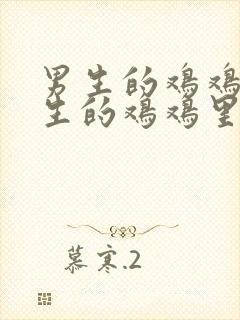 男生的鸡鸡
生的鸡鸡里
慕寒.2